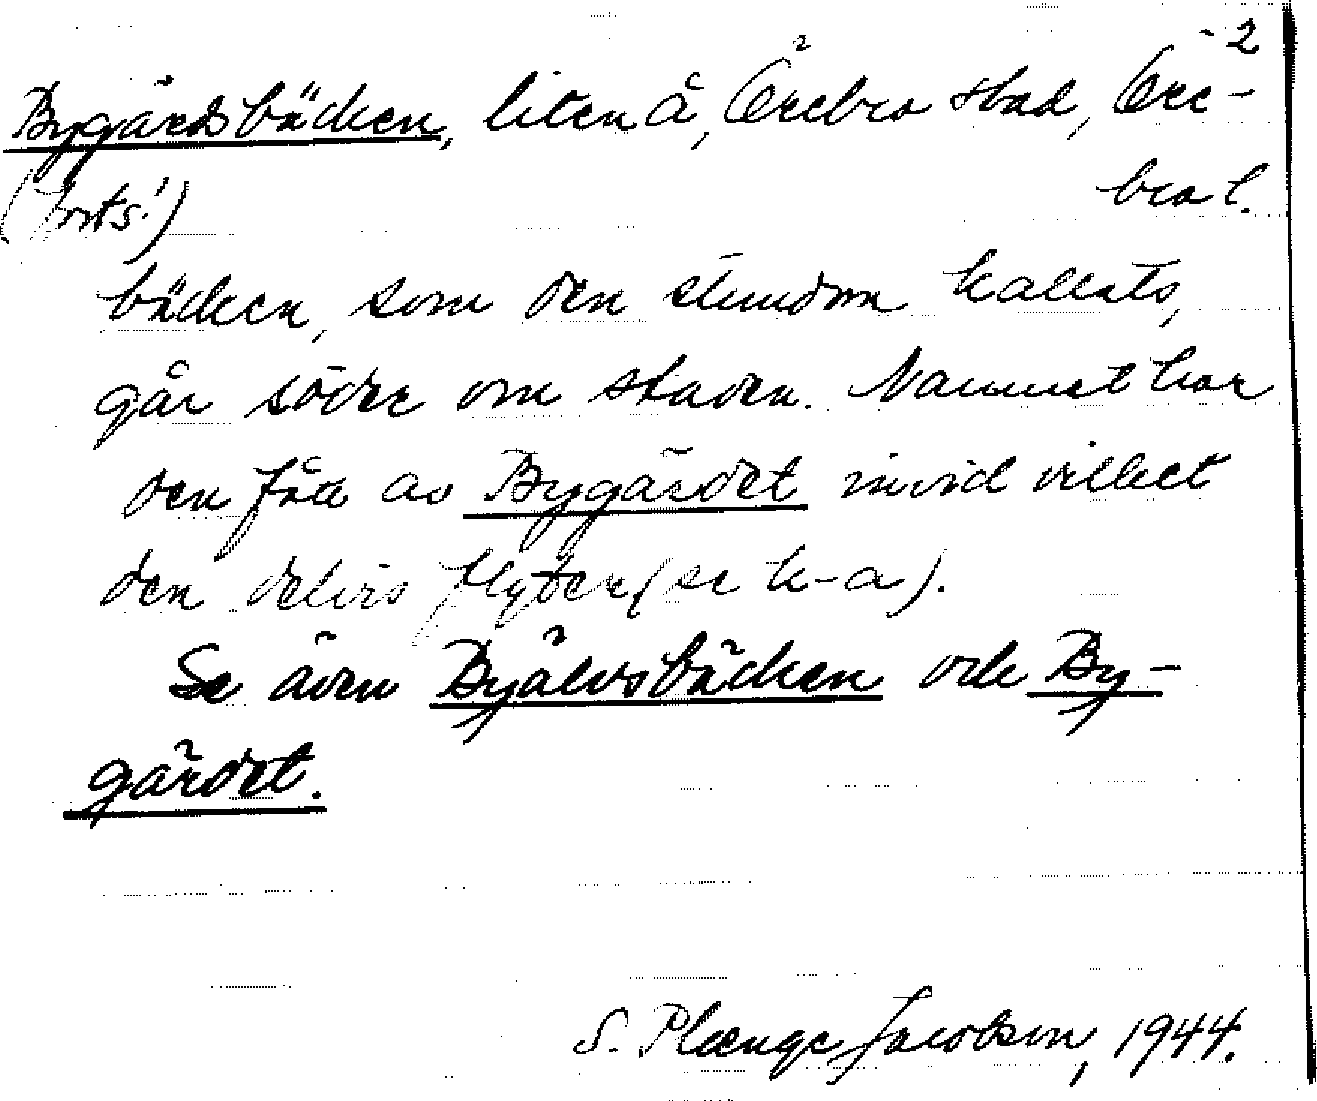 2
Bygärdsbäcken, liten å, Örebro stad, Öre-
(forts.) bro l.
bäcken, som den stundom kallats,
går söder om staden. Namnet har
den fått av Bygärdet invid vilket
den delvis flyter (se k-a).
Se även Byälvsbäcken och By-
gärdet.
S. Plænge Jacobson, 1944.